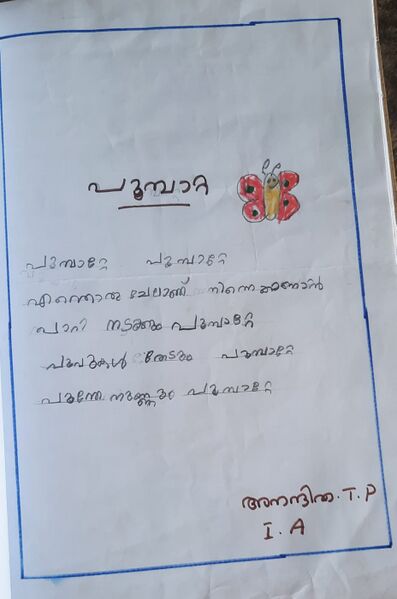 പൂമ്പാറ്റ
പൂമ്പാറ്റേ പൂമ്പാറ്റേ
എന്തൊരു ചേലാണ് നിന്നെ കാണാൻ
പാറി നടക്കും പൂമ്പാറ്റേ
പൂവുകൾ തേടും പൂമ്പാറ്റേ
പൂന്തേൻ നുണ്ണും പൂമ്പാറ്റേ
അനന്ദിത. T. P
I. A